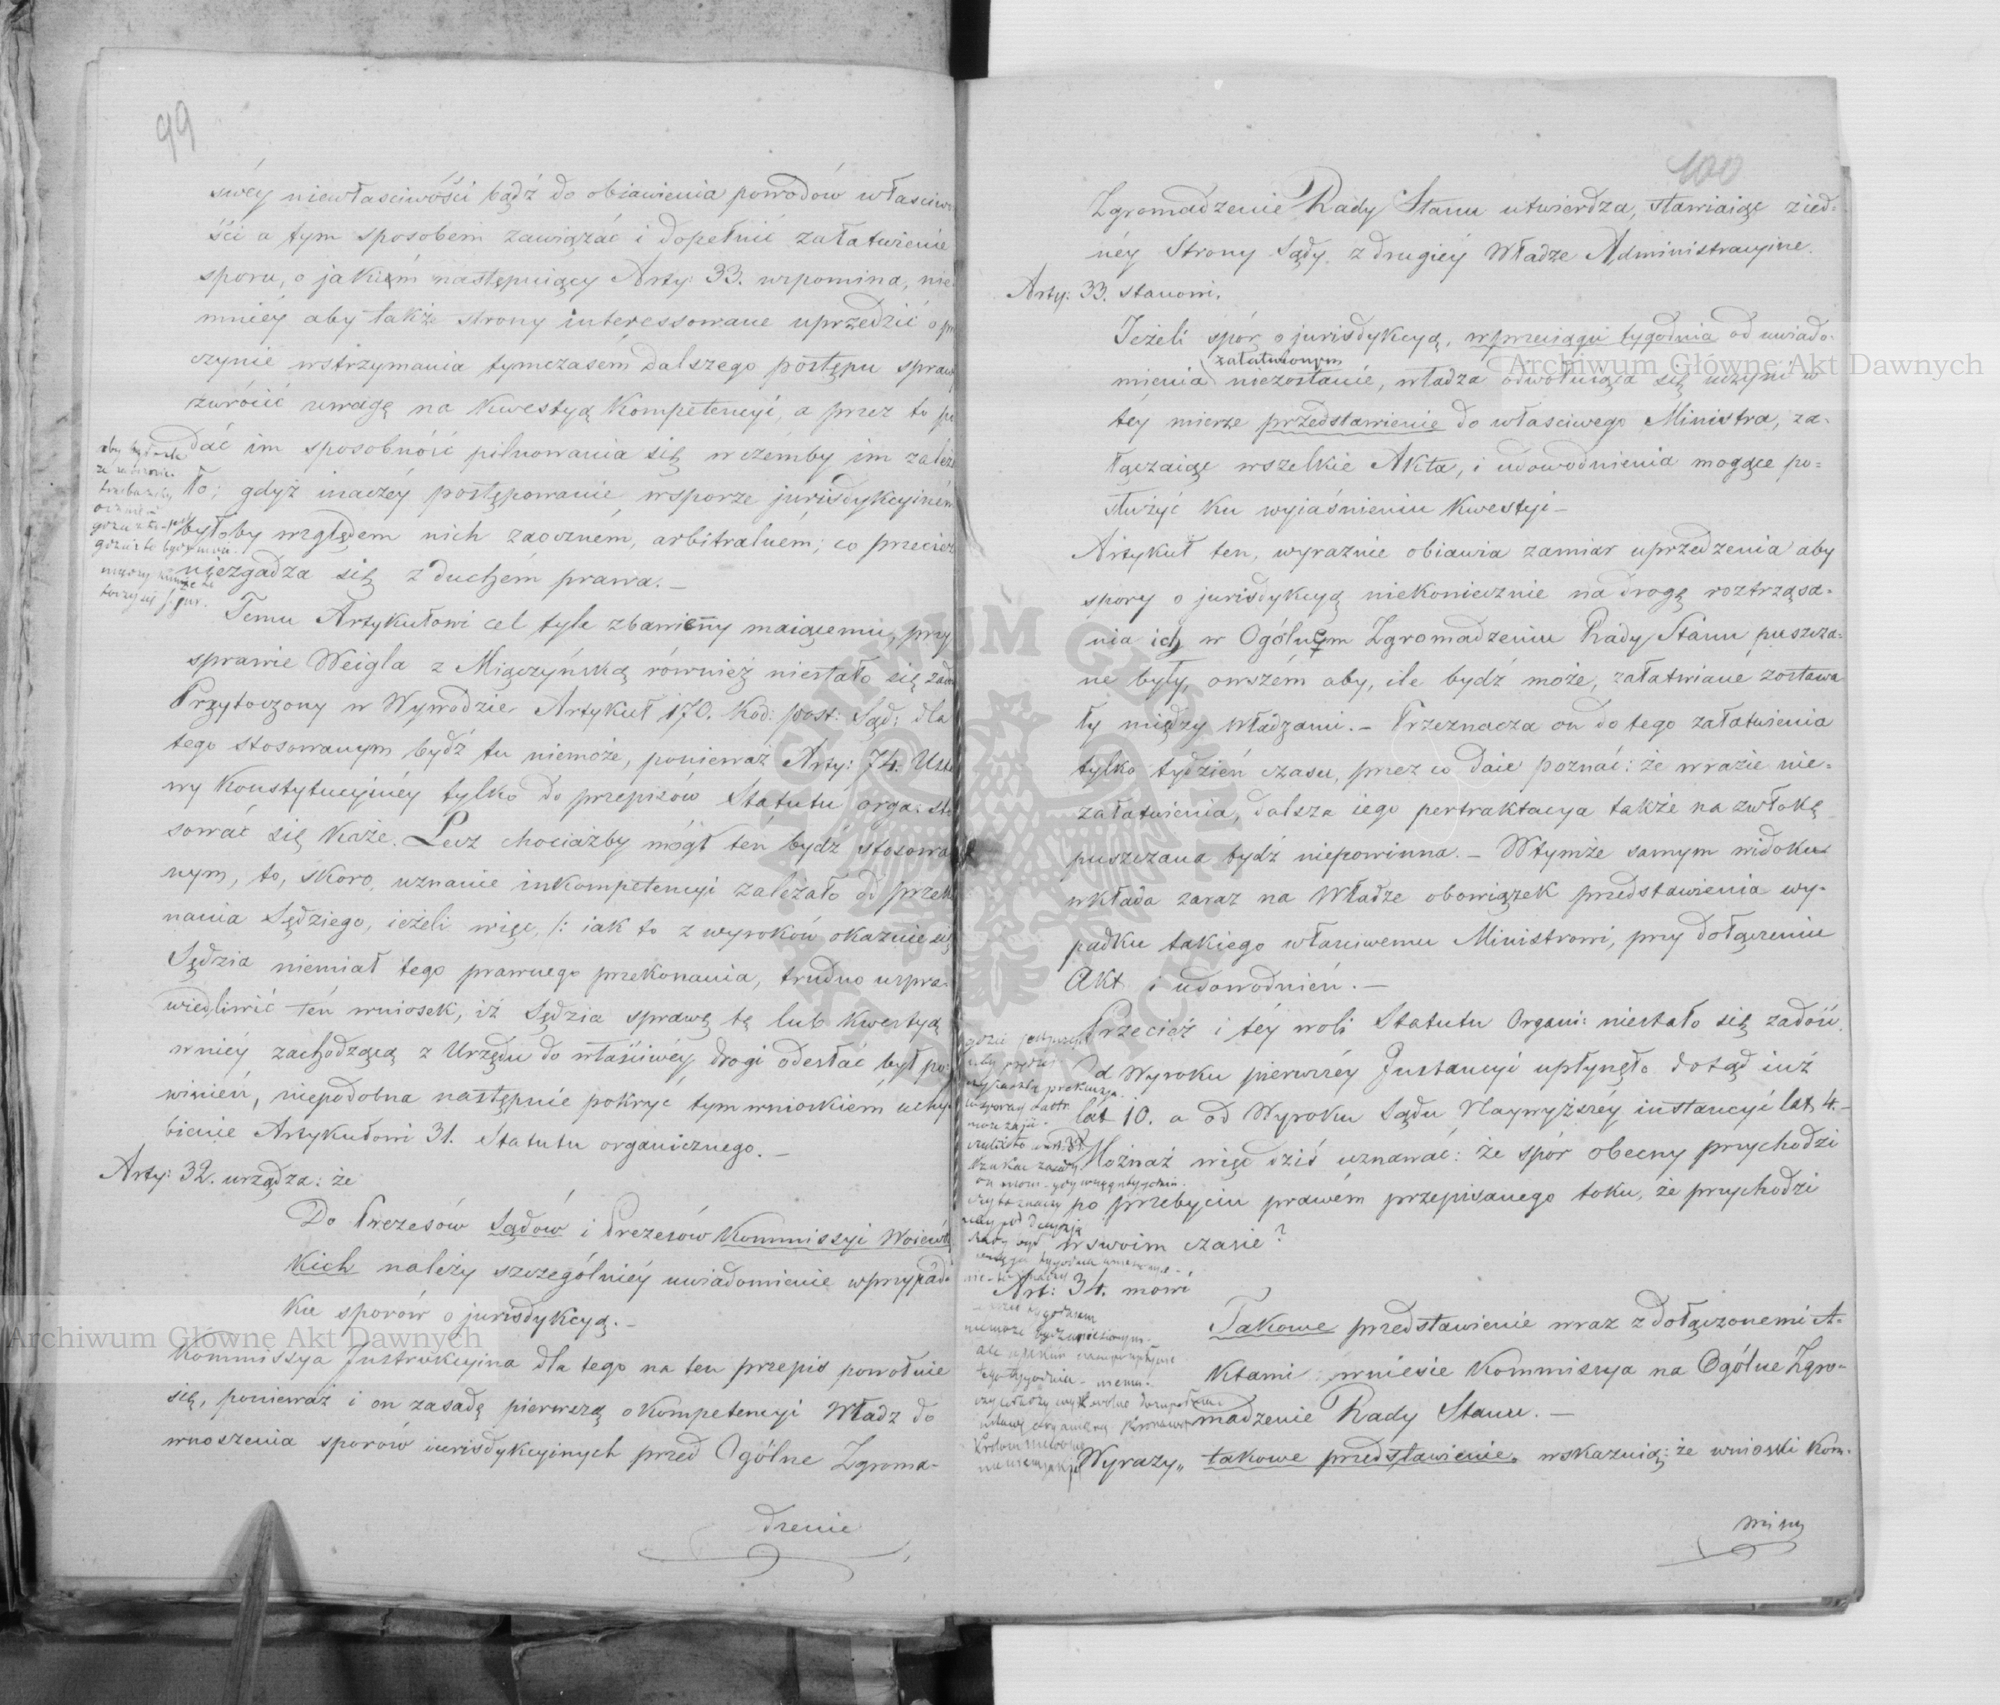 99
swéy niewłaściwości bądź do obiawienia powodów właściwo
ści a tym sposobem zawiązać i dopełnić załatwienie
sporu, o jakiem następuiący Arty: 33. wspomina, nie
mniéy aby także strony interessowane uprzedzić o
czynie wstrzymania tymczasem dalszego postępu spraw
zwrócić uwagę na kwestyą kompetencyi, a przez to po
dać im sposobność pilnowania się w czémby im zależa
ło; gdyż inaczéy postępowanie w sporze jurisdykcyiném
byłoby względem nich zaoczném, arbitralném; co przecież
niezgadza się z duchem prawa. —
Temu Artykułowi cel tyle zbawienny maiącemu, przy
sprawie Weigla z Miączyńską również niestało się zado
Przytoczony w Wywodzie Artykuł 170. Kod: post: Sąd: dla
tego stosowanym bydź tu niemoże, ponieważ Arty: 74. Usta
wy Konstytucyinéy tylko do przepisów Statutu orga. sto
sować się każe. Lecz chociażby mógł ten bydź stosowa
nym, to, skoro uznanie inkompetencyi zależało od przeko
nania Sędziego, ieżeli więc /: iak to z wyroków okazuie się
Sędzia niemiał tego prawnego przekonania, trudno uspra-
wiedliwić ten wniosek, iż Sędzia sprawę tę lub kwestyą
w niéy zachodzącą z Urzędu do właściwéy drogi odesłać był po-
winien, niepodobna następnie pokryć tym wnioskiem uchy
bienie Artykułowi 31. Statutu organicznego. —
Arty: 32. urządza: że
Do Prezesów Sądów i Prezesów Kommissyi Woiewódz
kich należy szczególniéy uwiadomienie w przypad-
ku sporów o jurisdykcyą. —
Kommissya Instrukcyina dla tego na ten przepis powołuie
się, ponieważ i on zasadę pierwszą o kompetencyi Władz do
wnoszenia sporów iurisdykcyinych przed Ogólne Zgroma-
dzenie
100
Zgromadzenie Rady Stanu utwierdza, stawiaiąc z ied-
néy Strony Sądy, z drugiéy Władze Administracyine.
Arty: 33. stanowi.
Jeżeli spór o jurisdykcyą, w przeciągu tygodnia od uwiado-
załatwionym
mienia niezostanie, władza odwołuiąca się uczyni w
téy mierze przedstawienie do właściwego Ministra, za-
łączaiąc wszelkie Akta, i udowodnienia mogące po-
służyć ku wyiaśnieniu kwestyi —
Artykuł ten, wyraznie obiawia zamiar uprzedzenia aby
spory o jurisdykcyą niekoniecznie na drogę roztrząsa-
nia ich w Ogólnem Zgromadzeniu Rady Stanu puszcza-
ne były, owszém aby, ile bydź może, załatwiane zostawa
ły między Władzami. — Przeznacza on do tego załatwienia
tylko tydzień czasu, przez co daie poznać: że w razie nie-
załatwienia, dalsza iego pertraktacya także na zwłokę
puszczana bydź niepowinna. — W tymże samym widoku
wkłada zaraz na Władze obowiązek przedstawienia wy-
padku takiego właściwemu Ministrowi, przy dołączeniu
Akt i udowodnień. —
Przecież i téy woli Statutu Organi: niestało się zadość.
d Wyroku pierwszéy Instancyi upłynęło dotąd iuż
lat 10. a od Wyroku Sądu Naywyższéy instancyi lat 4. —
Możnaż więc dziś uznawać: że spór obecny przychodzi
po przebyciu prawém przepisanego toku, że przychodzi
w swoim czasie?
Art: 34. mówi
Takowe przedstawienie wraz z dołączonemi A-
ktami wniesie Kommissya na Ogólne Zgro-
madzenie Rady Stanu. —
Wyrazy „takowe przedstawienie" wskazuią: że wnioski Kom-
missy
Archiwum Główne Akt Dawnych
Archiwum Główne Akt Dawnych